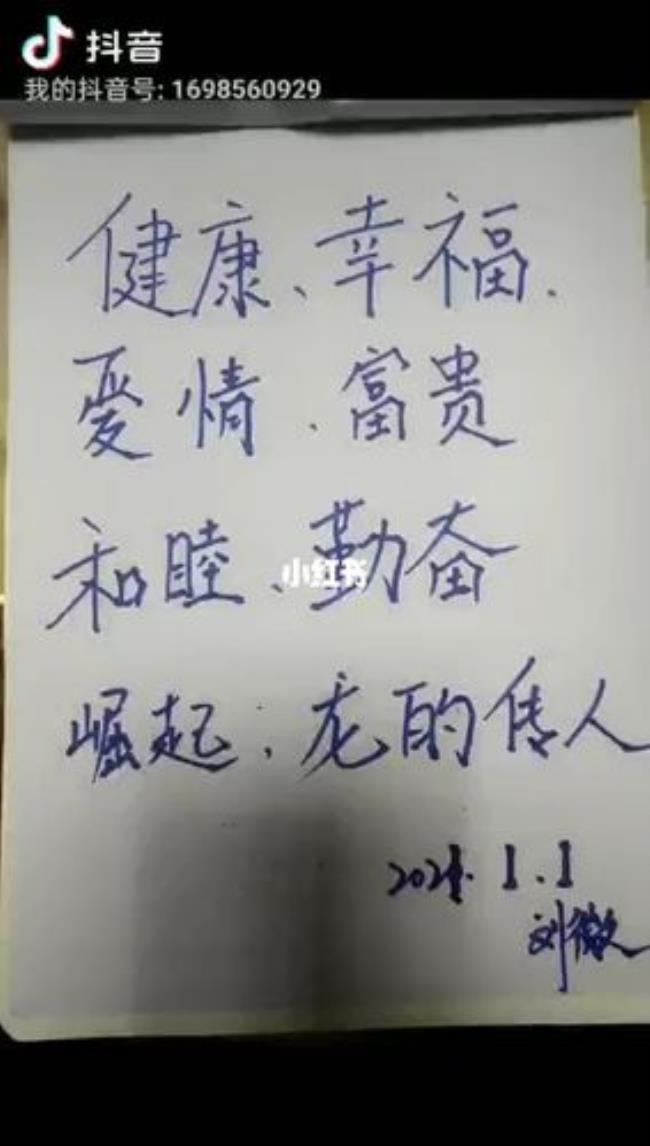 抖音
我的抖音号: 1698560929
健康、幸福、
爱情、富贵
和睦、勤奋
小红书
崛起、龙的传人
2021.1.1
刘微